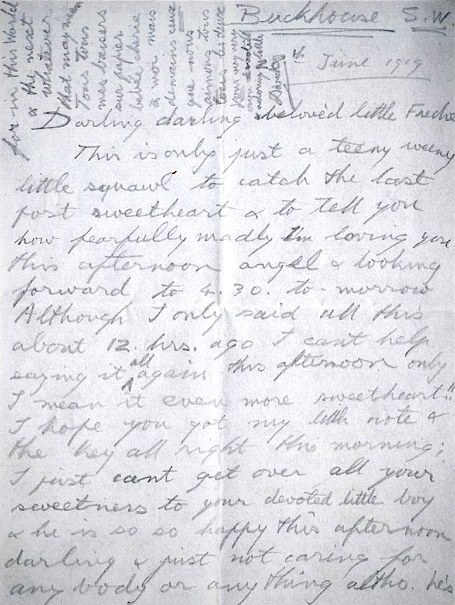 Buckhouse S.W.
th June 1919
Darling darling beloved little Fredie
This is only just a teeny weeny
little squawl to catch the last
post sweetheart & to tell you
how fearfully madly I'm loving you
this afternoon angel & looking
forward to 4.30. to-morrow
Although I only said all this
about 12. hrs. ago I can't help
saying it all again this afternoon only
I mean it even more sweetheart!!
I hope you got my little note &
the key all right this morning;
I just cant get over all your
sweetness to your devoted little boy
& he is so so happy this afternoon
darling & just not caring for
any body or any thing altho. he's
for in this World
& the next
whatever
that may mean
Tous tous
mes baisers
sur papier
bébé chérie
à moi mais
demains ceux
que nous
aimons tous
tous les deux
your very very
own devoted
adoring little
David